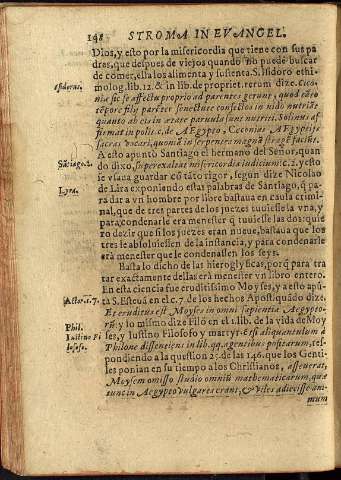 198 STROMA IN EVANGEL.
Dios, y esto por la misericordia que tiene con sus pa
dres, que despues de viejos quando no puede buscar
de comer, ella los alimenta y sustenta. S. Isidoro ethi-
Isidorus. molog. lib. 12. & in lib. de propriet. rerum dize.
nia sic se affectu proprio ad parentes gerunt, quod eo
tẽpore filij pariter senectute confectos in nido nutriãt
quanto ab eis in ætate parvula sunt nutriti. Solinus af
firmat in polis. c. de AEgypto, Ceconias AEgyptijs
sacras vocari, quoniã in serpentes magnã stragẽ faciũt.
A esto apuntò Santiago el hermano del Señor, quan
Sãtiago. 2. do dixo, superexaltat misericordia iudicium c. 2. y esto
se usaua guardar cõ tãto rigor, segun dize Nicolao
Lyra. de Lira exponiendo estas palabras de Santiago, q̃ pa
ra dar a vn hombre por libre bastaua en causa crimi
nal, que de tres partes de los juezes tuuiesse la vna, y
para condenarle era menester q̃ tuuiesse las dos: quie
ro dezir que si los juezes eran nueue, bastaua que los
tres le absoluiessen de la instancia, y para condenarle
era menester que le condenassen los seys.
Basta lo dicho de las hieroglyficas, porq̃ para tra
tar exactamente dellas era menester vn libro entero.
En esta ciencia fue eruditissimo Moyses, y a esto apũ
Actor. c. 7. ta S. Esteuã en el c. 7. de los hechos Apostolicos dõ dize.
Et eruditus est Moyses in omni sapientia AEgyptio
rũ: y lo mismo dize Filo en el 1. lib. de la vida de Moy
Phil. ses, y Iustino Filosofo y martyr
Iustino Fi Philone dissentiens in lib. qq. agentibus positarum, res-
losofo. pondiendo a la question 25. de las 146. que los Genti
les ponian en su tiempo a los Christianos, asseuerat,
Moysem omisso studio omniũ mathematicarum, quæ
tunc in AEgypto vulgares erant, & viles adiecisse ani-
mum